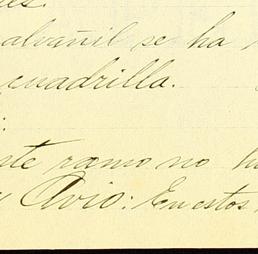 es.
alvañil se ha
cuadrilla.
:
ste ramo no h
y Avio: En estos